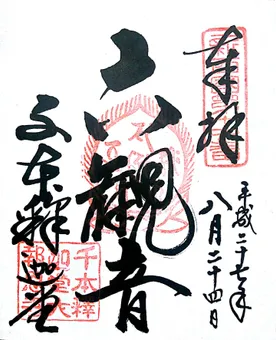 奉拝
平成二十七年
八月二十四日
六観音
千本釋迦堂
千本釋
迦堂大
報恩寺